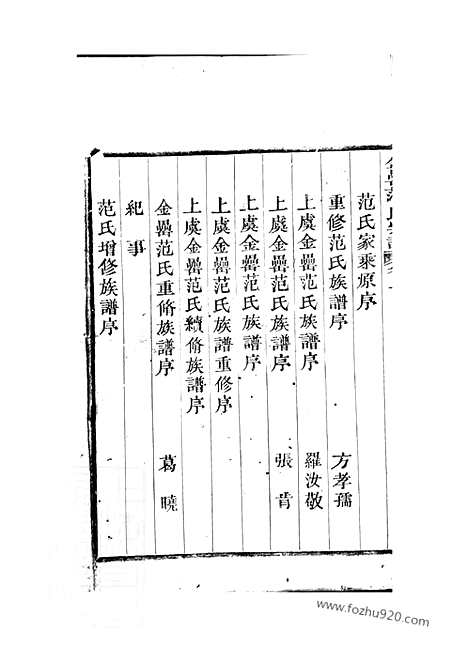 范氏家乘原序
重修范氏族譜序 方孝孺
上虞金罍范氏族譜序 羅汝敬
上虞金罍范氏族譜序 張肯
上虞金罍范氏族譜序
上虞金罍范氏族譜重修序
上虞金罍范氏續脩族譜序
金罍范氏重脩族譜序 葛曉
紀事
范氏增修族譜序
www.fozhu920.com